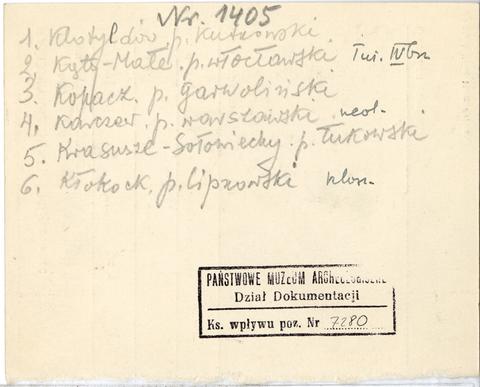 Nr. 1405
1. Klotyldów, p. Kutnowski
2. Kąty-Małe. p. włocławski Tni. IVbr.
3. Kopacz. p. garwoliński
4. Karczew. p. warszawski neol.
5. Krasusze-Gołowiechy. p. łukowski
6. Kłokock. p. lipnowski
PAŃSTWOWE MUZEUM ARCHEOLOGICZNE
Dział Dokumentacji
Ks. wpływu poz. Nr 7280